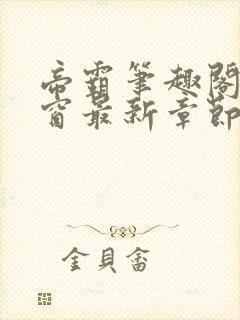 帝霸筆趣閣
窗最新章節
金貝畲